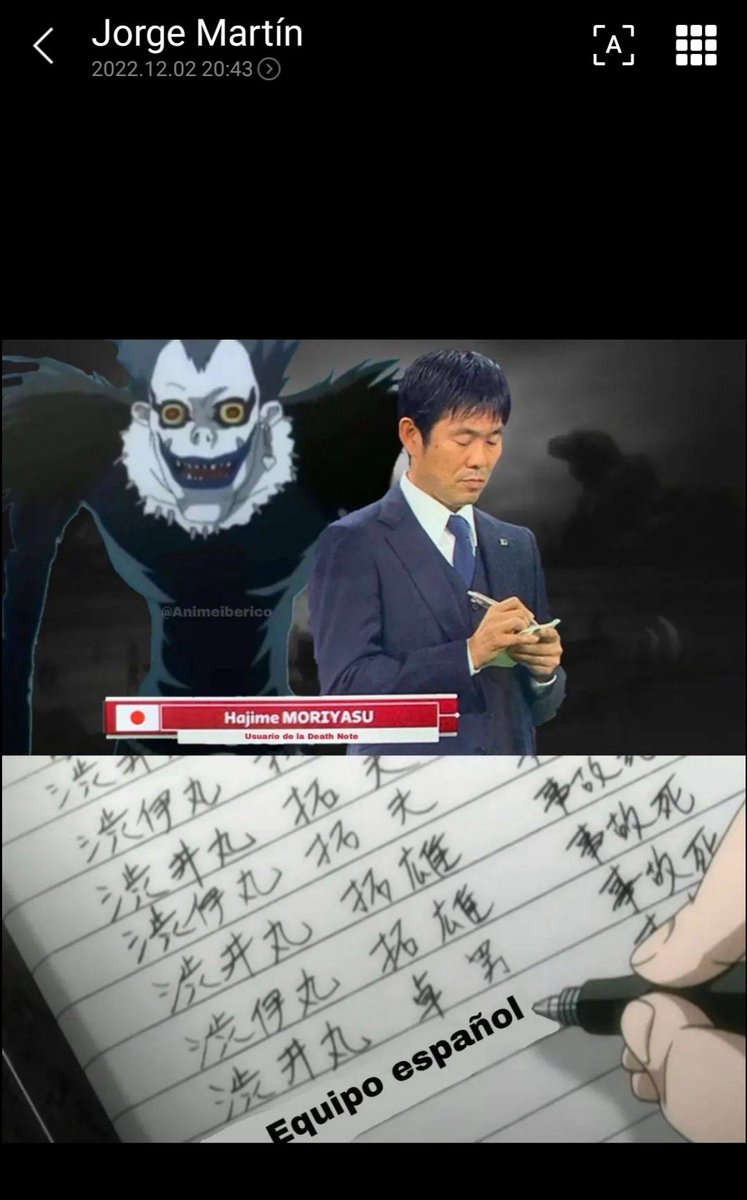 Jorge Martín
2022.12.02 20:43
A
@Animeiberico
Hajime MORIYASU
Usuario de la Death Note
渋伊丸
渋井丸 拓夫
渋伊丸 拓夫
渋井丸 拓雄 事故死
渋伊丸 拓雄 事故死
渋井丸 卓男 事故死
Equipo español